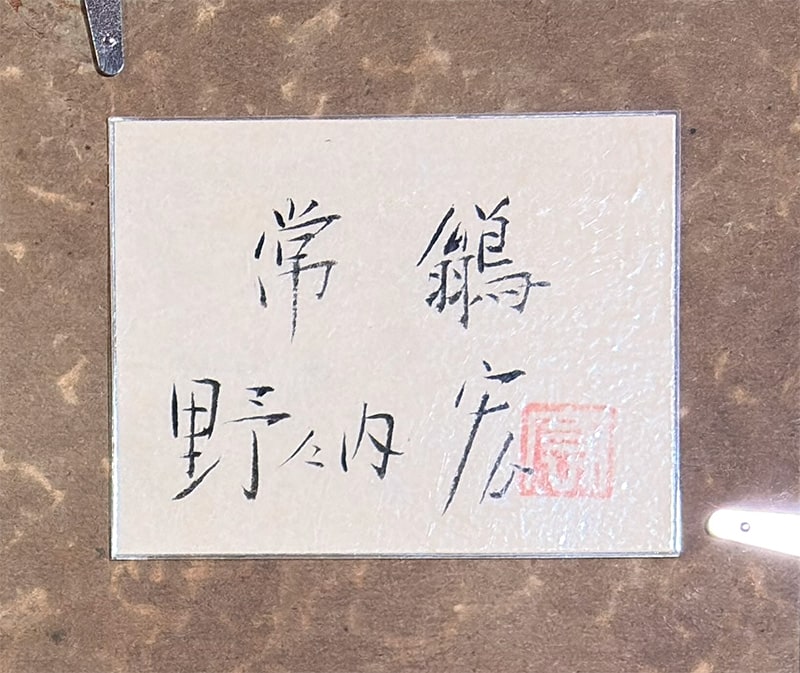 常鶲
野々内 宏